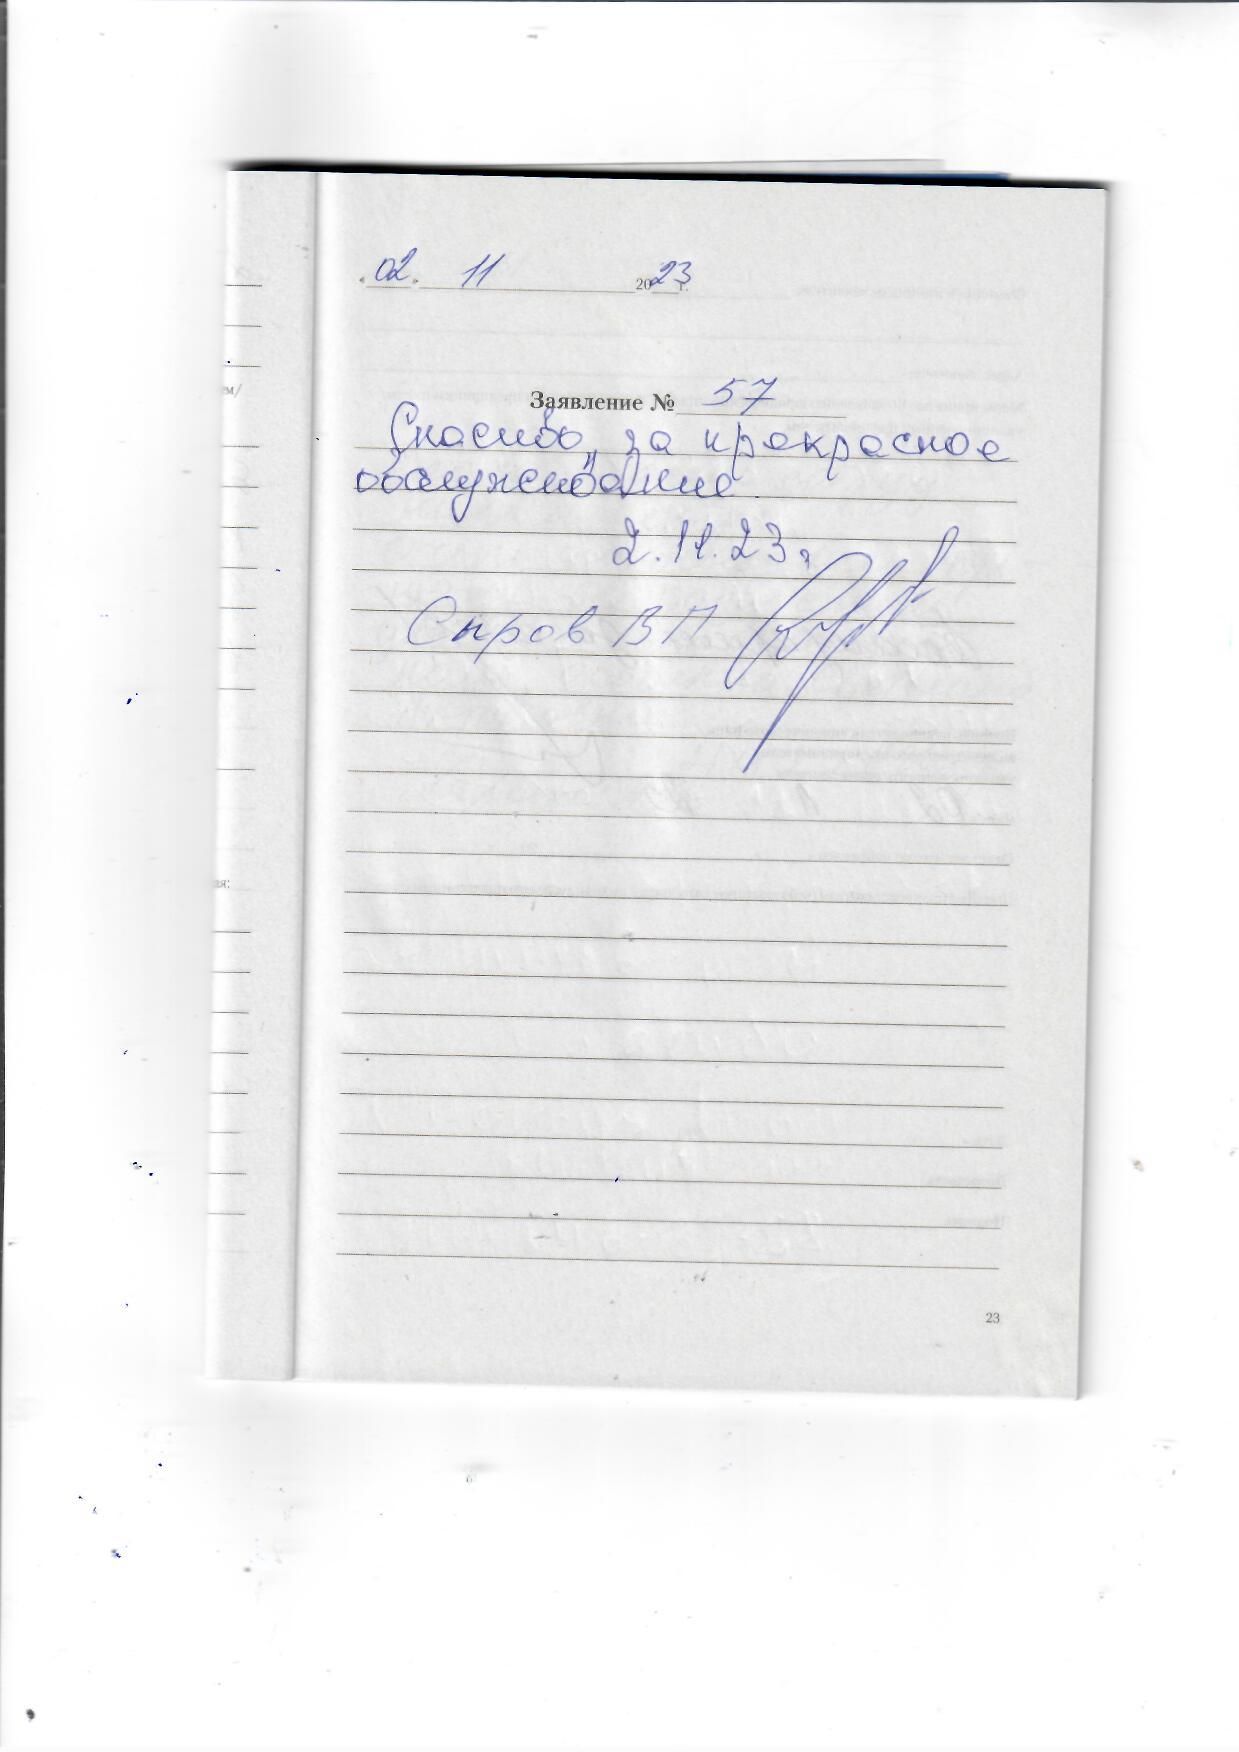 «02» 11 2023 г.
ем/
Заявление № 57
Спасибо, за прекрасное
обслуживание.
2.11.23 г
Сыров В П
ая:
23